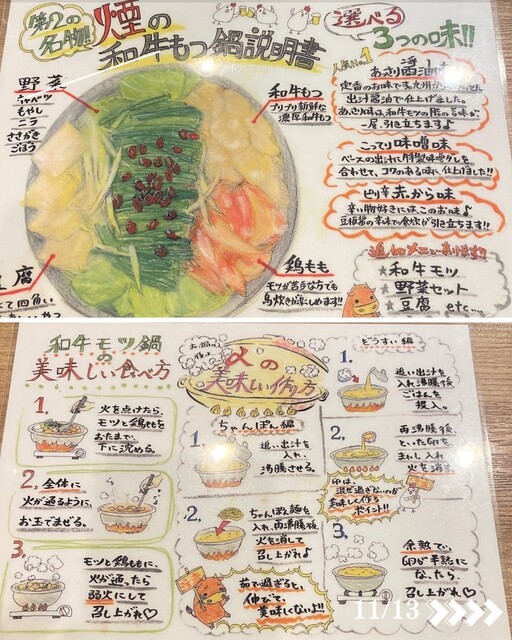 第2の
名物!!
煙の
和牛もつ鍋説明書
選べる
3つの味!!
野菜
キャベツ
もやし
ニラ
ささがき
ごぼう
和牛もつ
プリプリ新鮮な
濃厚和牛もつ
鶏もも
モツが苦手な方でも
鳥炊きが楽しめます!!
豆腐
人気No.1
あさり醤油
定番のお味です。九州から
出汁醤油で仕上げました。
あさり味は、和牛モツの脂の旨味が
一層、引き立ちます♪
こってり味噌味
ベースの出汁に特製味噌ダレを
合わせて、コクのある味に仕上げました!!
ピリ辛赤から味
辛い物好きには、このお味♪
豆板醤の辛味で食欲が引き立ちます!!
追加メニューあります!!
★和牛モツ
★野菜セット
★豆腐 etc....
和牛モツ鍋
の
美味しい食べ方
1.
火を点けたら、
モツと鶏ももを
おたまで、
下に沈める。
2.
全体に
火が通るように、
お玉でまぜる。
3.
モツと鶏ももに、
火が通ったら
弱火にして
召し上がれ♡
〆の
美味しい作り方
ちゃんぽん編
1.
追い出汁を
入れ、
沸騰させる。
2.
ちゃんぽん麺を
入れ、再沸騰後、
火を消して
召し上がれ♪
茹で過ぎると、
伸びて、
美味しくないよ!!
ぞうすい編
1.
追い出汁を
入れ沸騰後
ごはんを
投入。
2.
再沸騰後
といた卵を
まわし入れ
火を消す。
卵は、
混ぜ過ぎないのが
美味しく作る
ポイント!!
3.
余熱で、
卵が半熟に
なったら、
召し上がれ♡
11/13